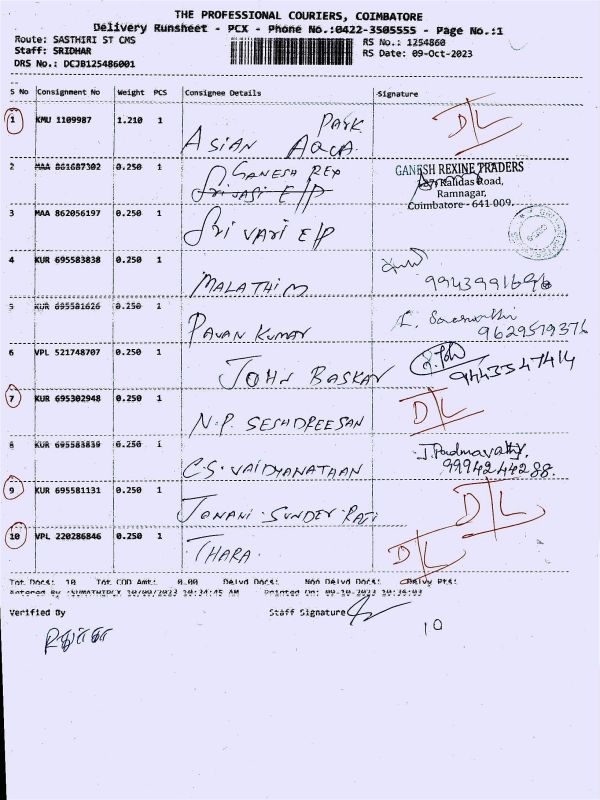 THE PROFESSIONAL COURIERS, COIMBATORE
Delivery Runsheet - PCX - Phone No.:0422-3505555 - Page No.:1
Route: SASTHIRI ST CMS RS No.: 1254860
Staff: SRIDHAR RS Date: 09-Oct-2023
DRS No.: DCJB125486001
S No Consignment No Weight PCS Consignee Details Signature
1 KMU 1109987 1.210 1 ASIAN AQUA PARK D/L
2 MAA 861687302 0.250 1 GANESH REX
SRIVASI E/P
GANESH REXINE TRADERS
187, Kalidas Road,
Ramnagar,
Coimbatore - 641 009.
3 MAA 862056197 0.250 1 SRI VARI E/P
4 KUR 695583838 0.250 1 MALATHI M
5 KUR 695581626 0.250 1 PAVAN KUMAR
9629579376
6 VPL 521748707 0.250 1 JOHN BASKAR 9443547414
7 KUR 695302948 0.250 1 N.P. SESHDREESAN D/L
8 KUR 695583839 0.250 1 C.S. VAIDYANATAAN J. Padmavathy.
9994244288.
9 KUR 695581131 0.250 1 D/L
10 VPL 220286846 0.250 1 THARA. D/L
Tot Docs: 10 Tot COD Amt: 0.00 Delvd Docs: Non Delvd Docs: Delvy Pts:
Entered By :SUMATHIPCX 10/09/2023 10:34:45 AM Printed On: 09-10-2023 10:36:03
Verified By Staff Signature
10